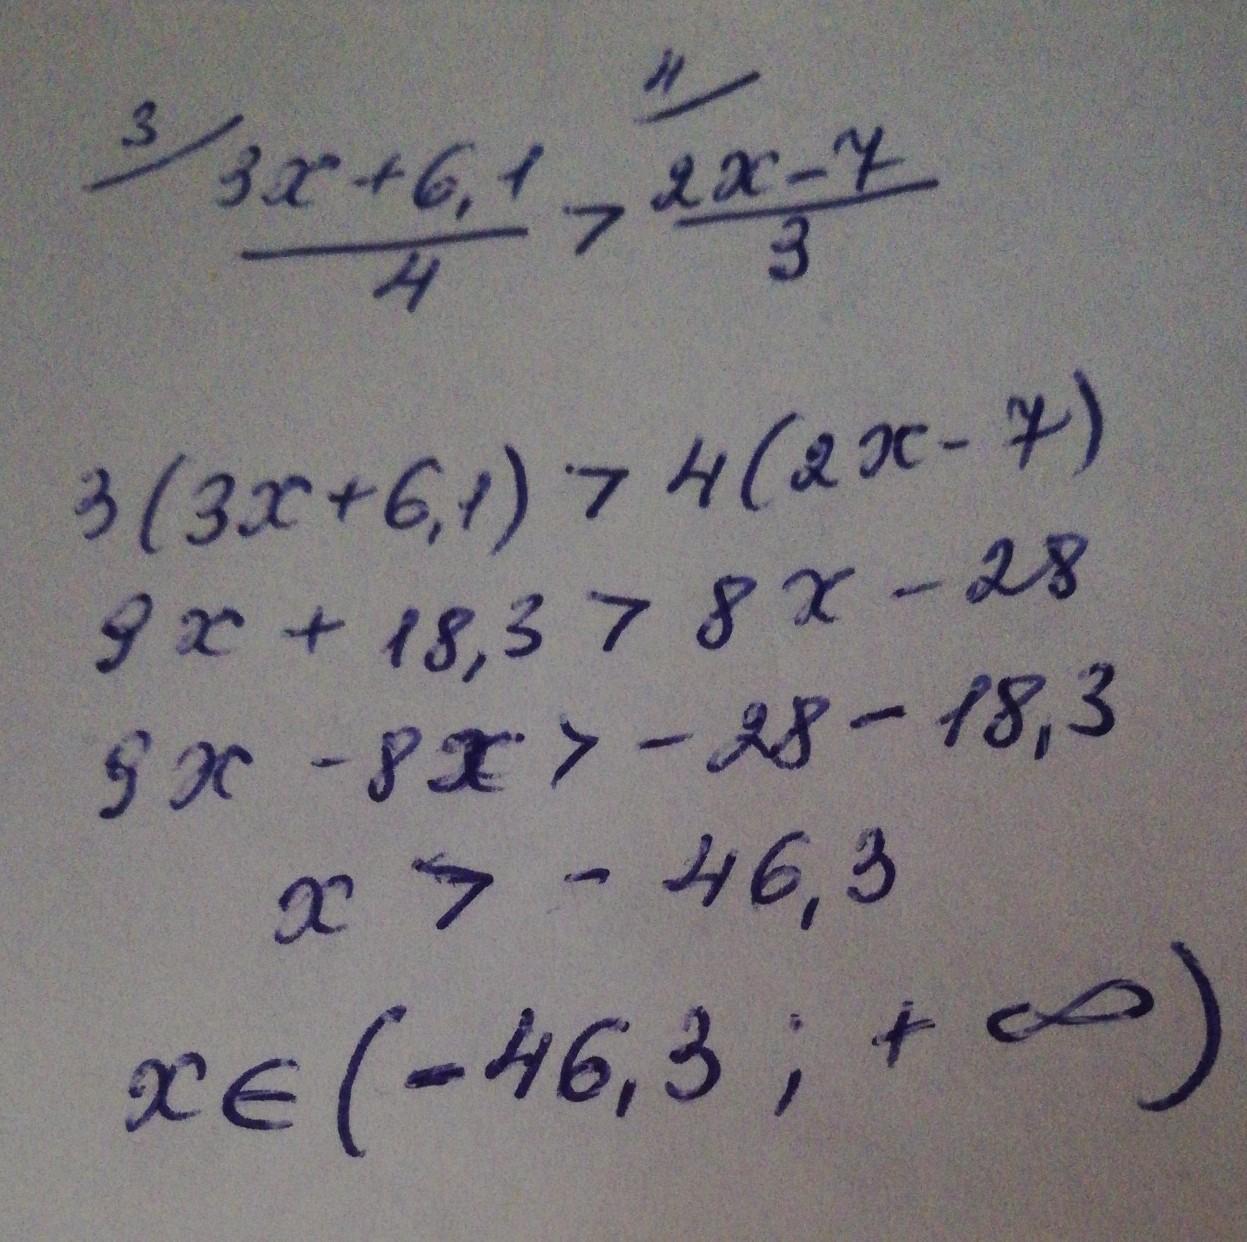 3/ 3x+6,1/4 > 4/ 2x-7/3
3(3x+6,1) > 4(2x-7)
9x + 18,3 > 8x - 28
9x - 8x > -28 - 18,3
x > - 46,3
x∈(-46,3 ; +∞)